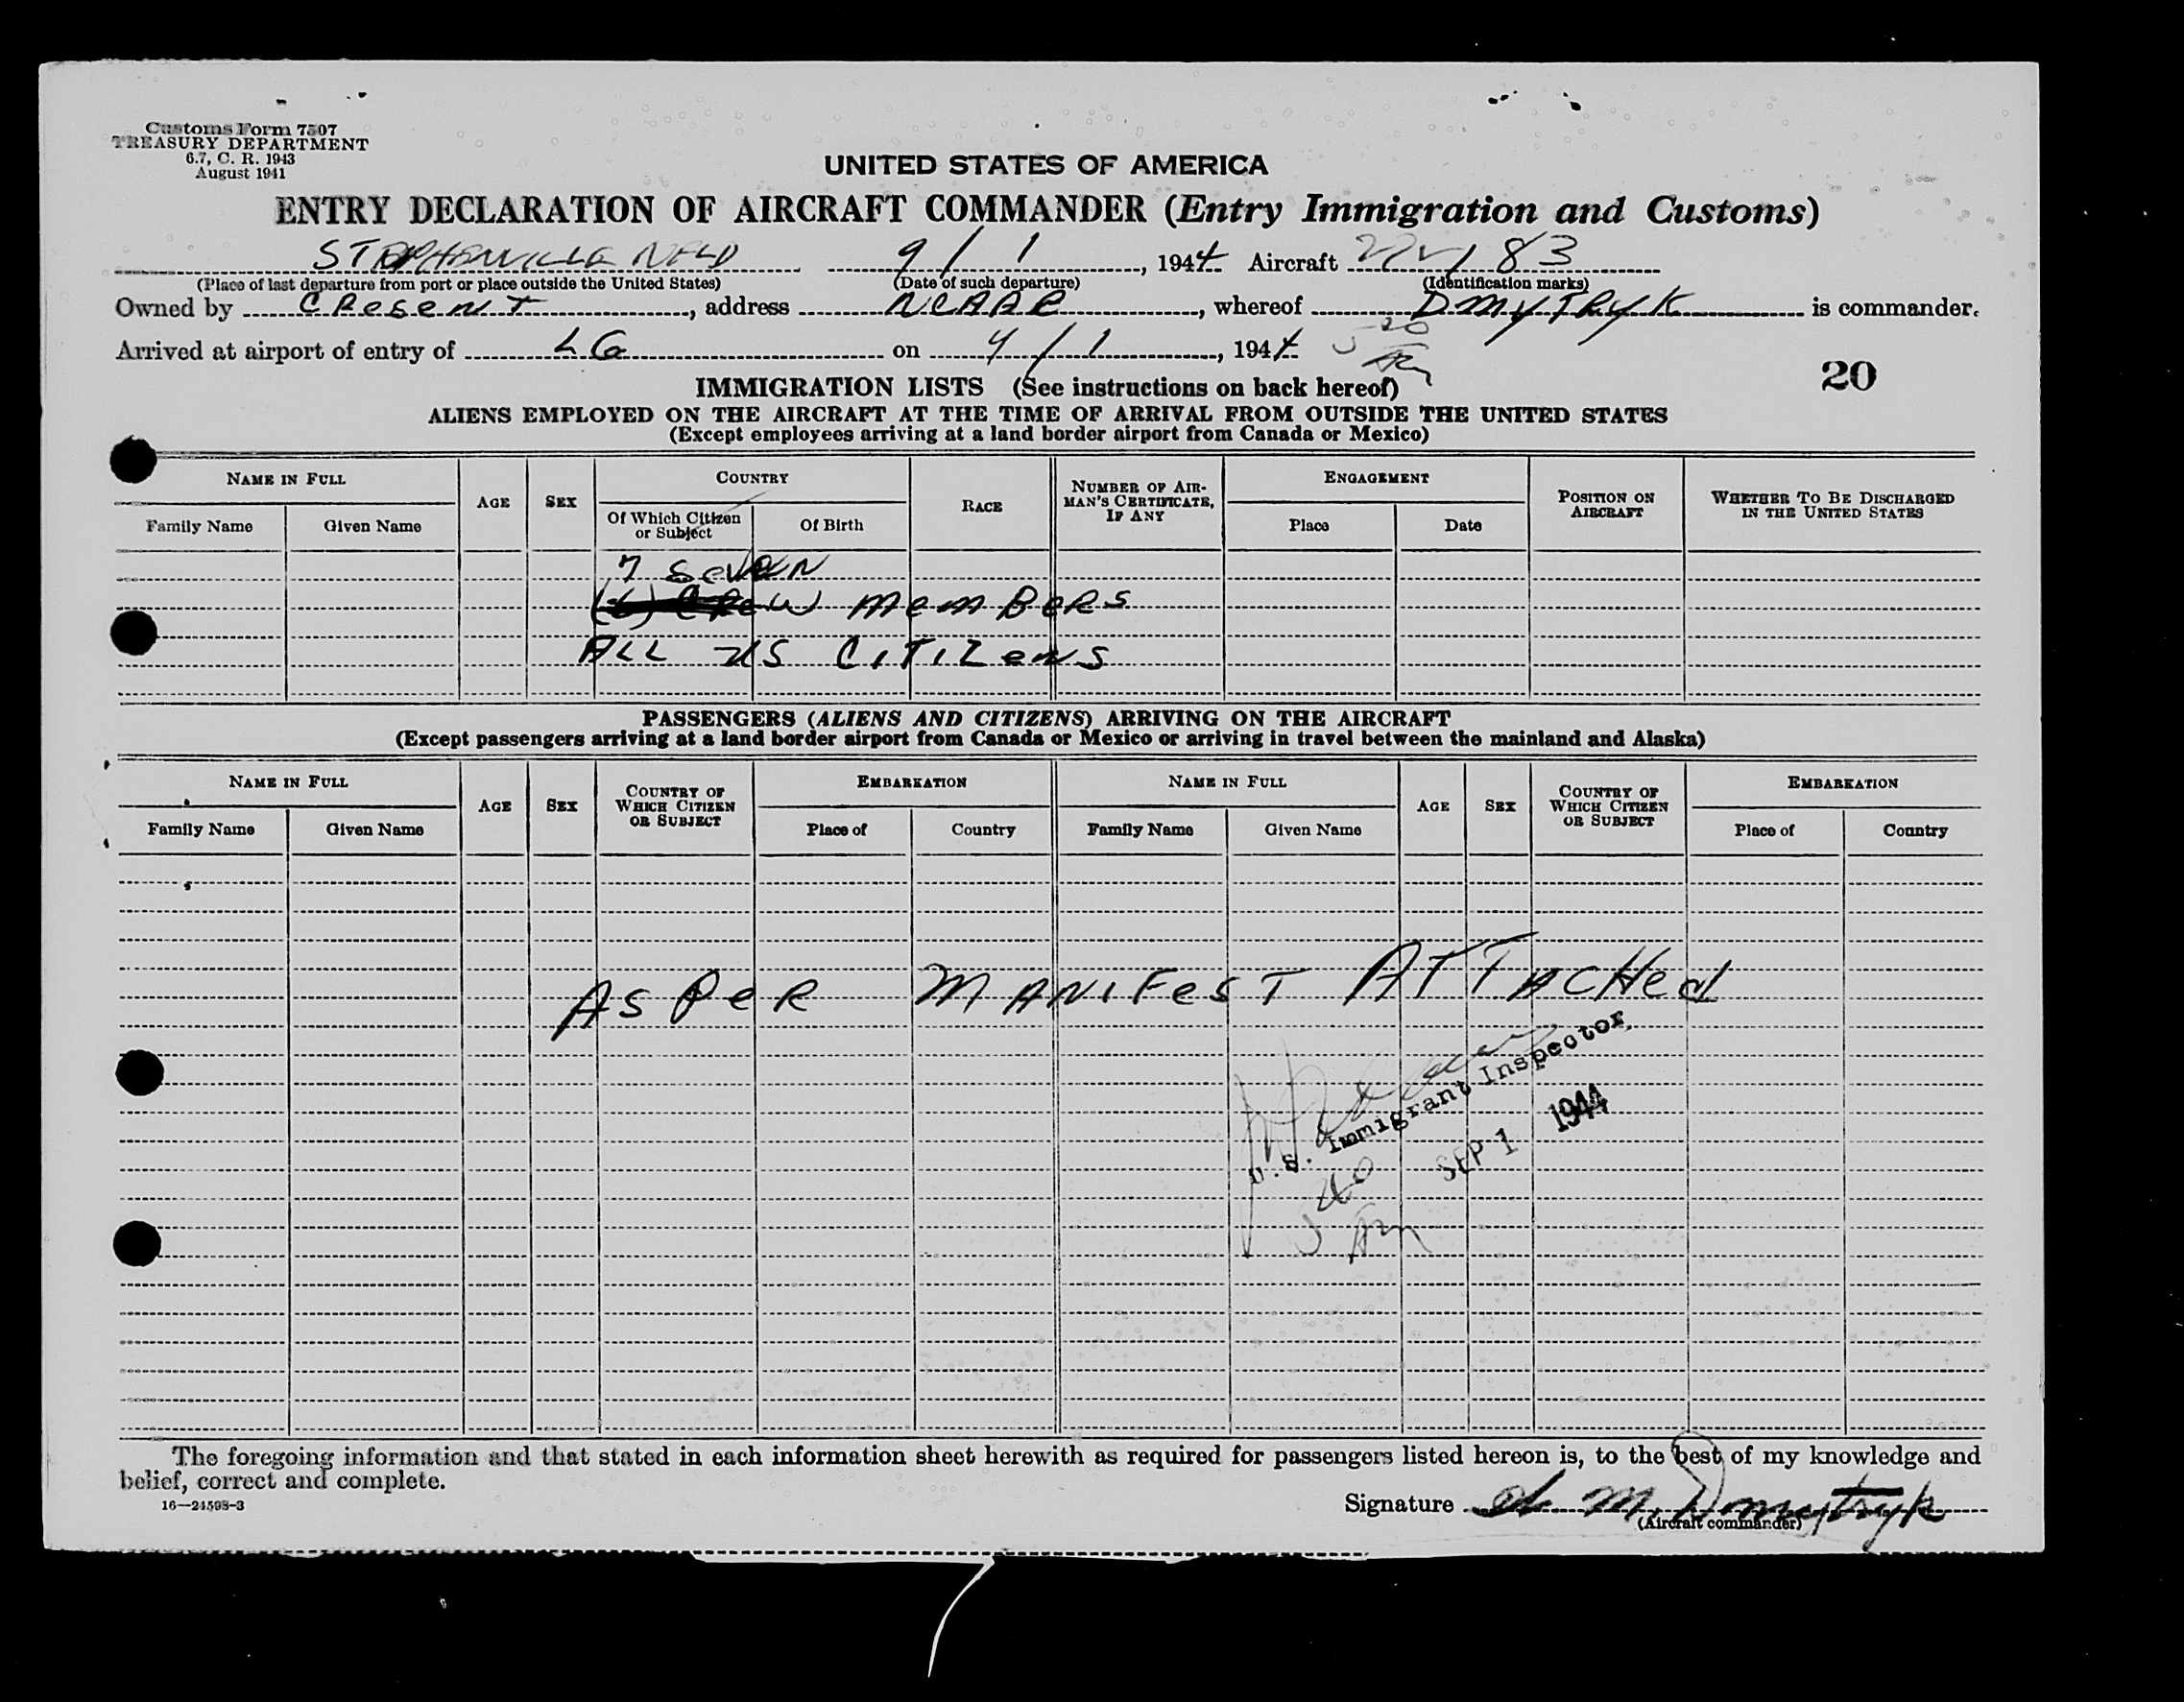 Customs Form 7507
TREASURY DEPARTMENT
6.7, C. R. 1943
August 1941
UNITED STATES OF AMERICA
ENTRY DECLARATION OF AIRCRAFT COMMANDER (Entry Immigration and Customs)
STEPHENVILLE NFLD 9/1, 1944 Aircraft 83
(Place of last departure from port or place outside the United States) (Date of such departure) (Identification marks)
Owned by CResenT, address, whereof DmyTRyK is commander.
Arrived at airport of entry of LG on 9/1, 1944
20
IMMIGRATION LISTS (See instructions on back hereof)
ALIENS EMPLOYED ON THE AIRCRAFT AT THE TIME OF ARRIVAL FROM OUTSIDE THE UNITED STATES
(Except employees arriving at a land border airport from Canada or Mexico)
NAME IN FULL AGE SEX COUNTRY RACE NUMBER OF AIRMAN'S CERTIFICATE, IF ANY ENGAGEMENT POSITION ON AIRCRAFT WHETHER TO BE DISCHARGED IN THE UNITED STATES
Family Name Given Name Of Which Citizen or Subject Of Birth Place Date
7 SeVeN
(6) CRew memBeRs
ALL US CITIZens
PASSENGERS (ALIENS AND CITIZENS) ARRIVING ON THE AIRCRAFT
(Except passengers arriving at a land border airport from Canada or Mexico or arriving in travel between the mainland and Alaska)
NAME IN FULL AGE SEX COUNTRY OF WHICH CITIZEN OR SUBJECT EMBARKATION NAME IN FULL AGE SEX COUNTRY OF WHICH CITIZEN OR SUBJECT EMBARKATION
Family Name Given Name Place of Country Family Name Given Name Place of Country
AS PeR MANIFesT ATTACHed
U.S. Immigrant Inspector
SEP 1 1944
The foregoing information and that stated in each information sheet herewith as required for passengers listed hereon is, to the best of my knowledge and
belief, correct and complete.
16—24598-3
Signature M. Dmytryk
(Aircraft commander)